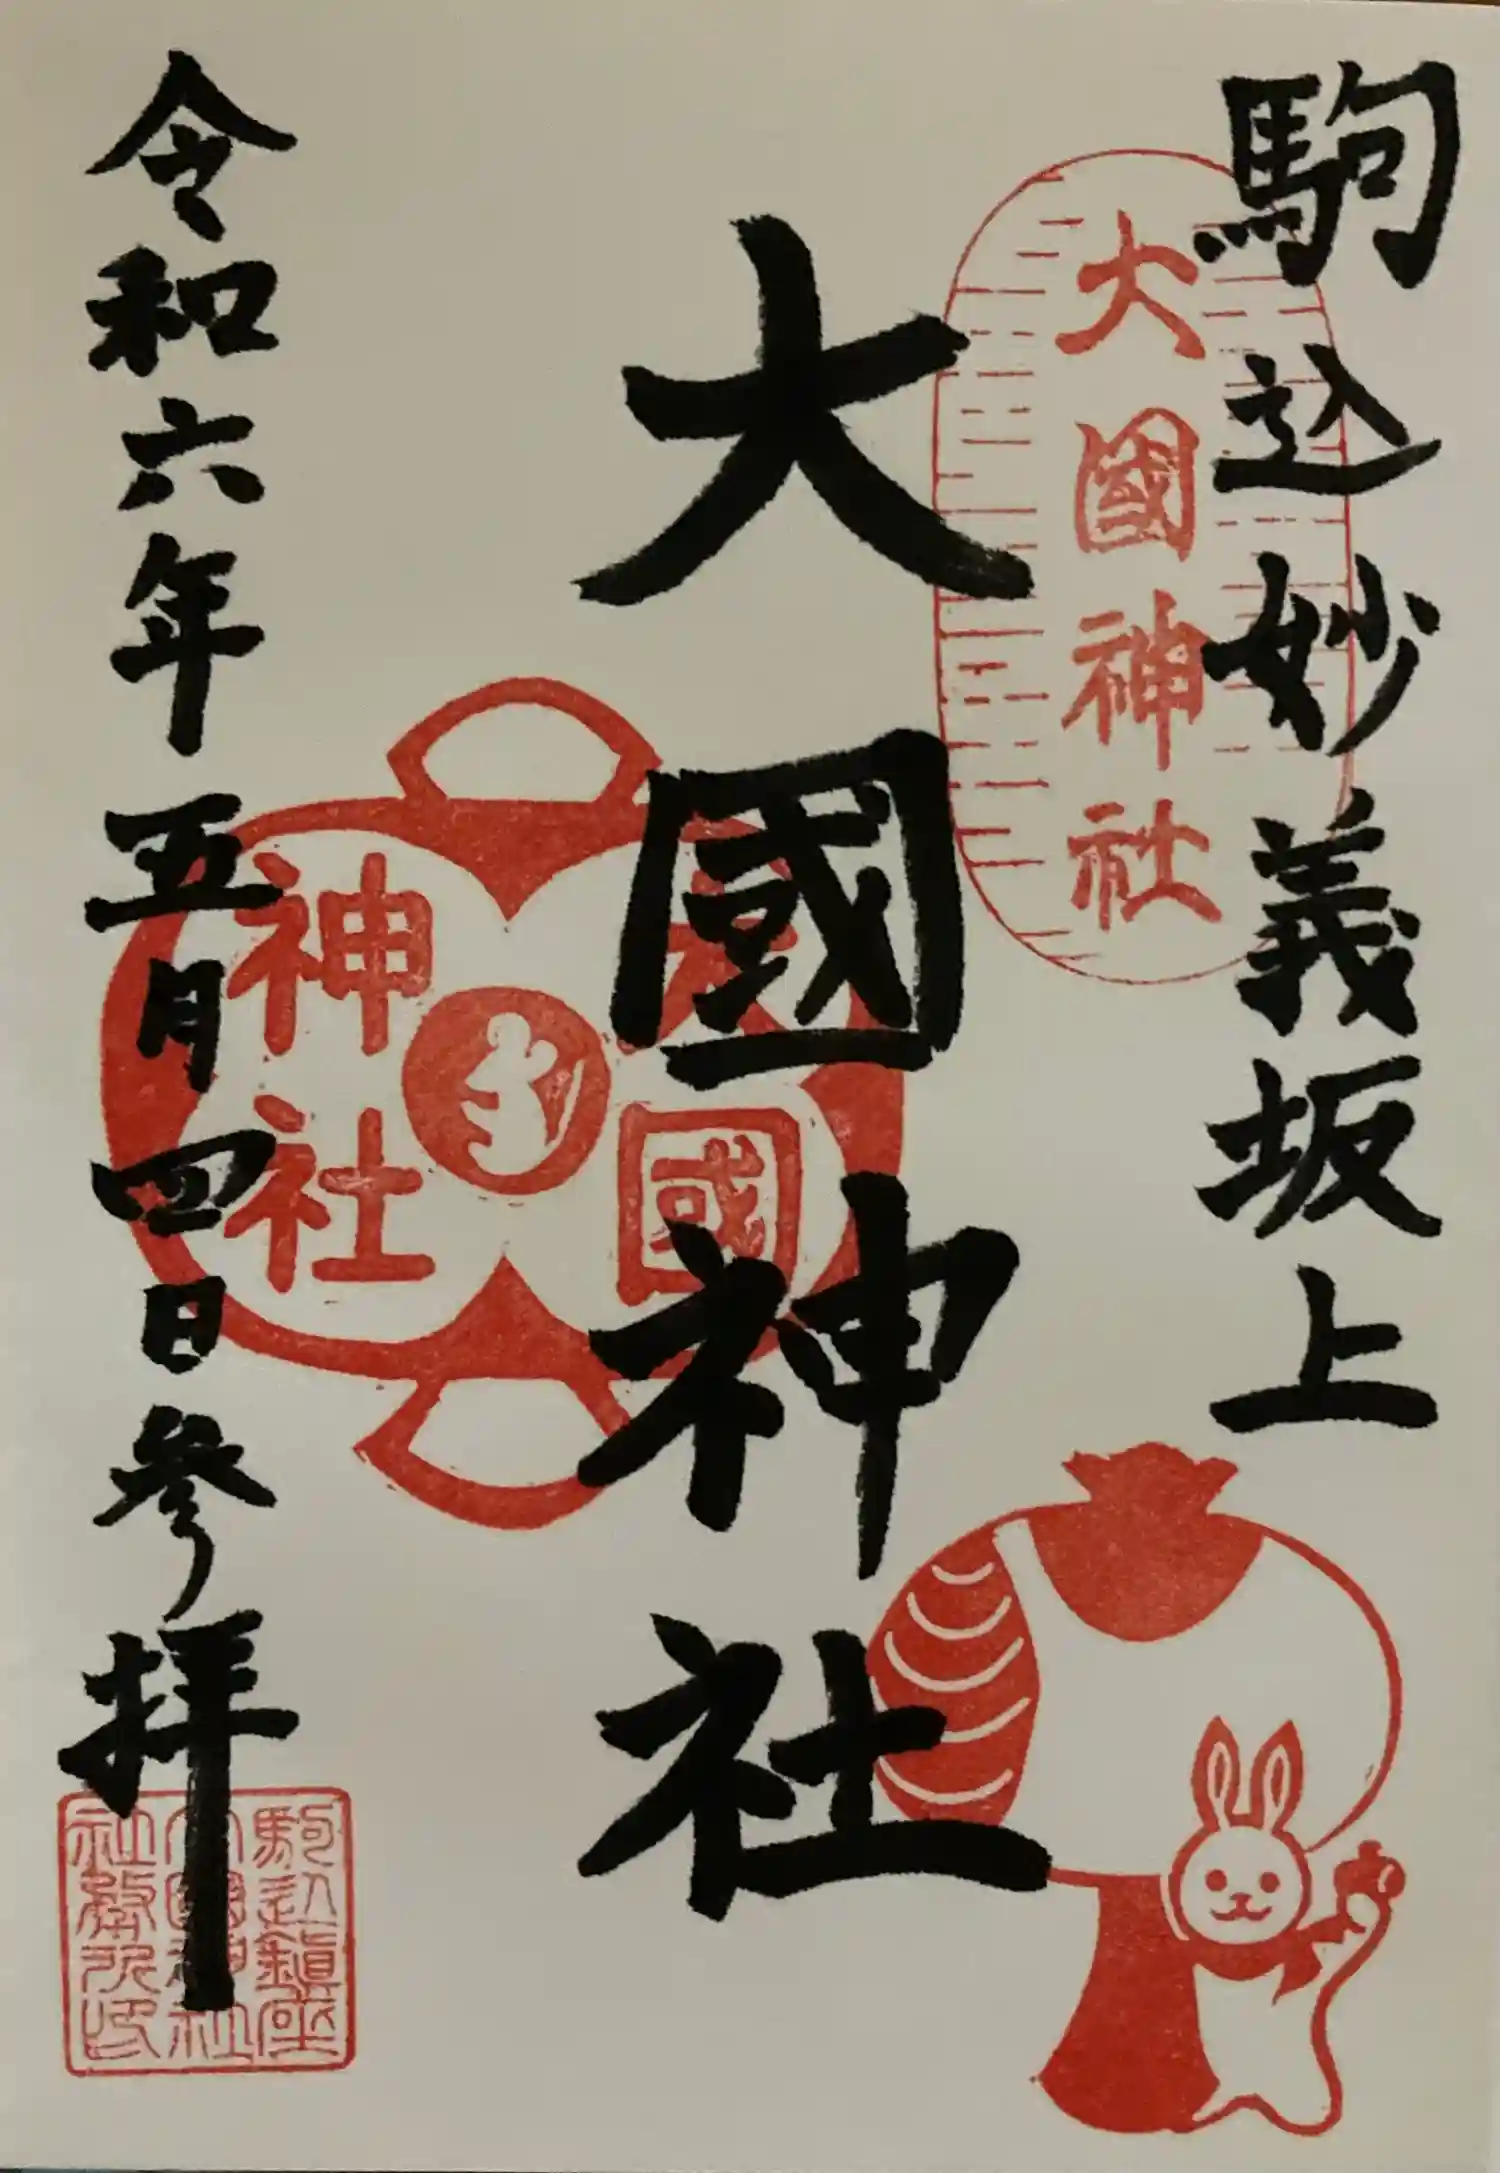 駒込妙義坂上
大國神社
大國神社
大國神社
令和六年五月四日参拝
駒込鎮座
大國神社
社務所印